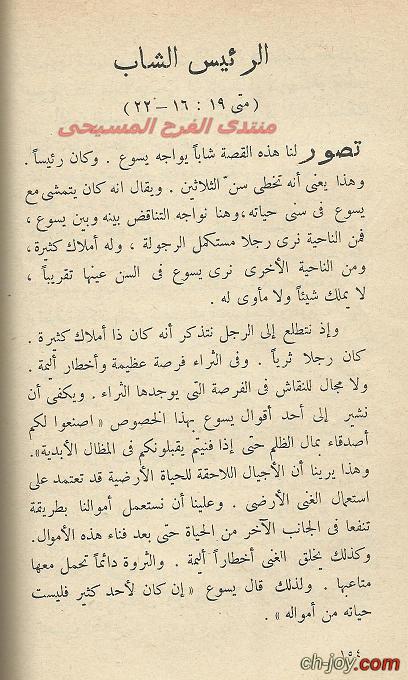 الرئيس الشاب
( متى ١٩ : ١٦ – ٢٢ )
منتدى الفرح المسيحى
تصور لنا هذه القصة شاباً يواجه يسوع . وكان رئيساً .
وهذا يعنى أنه تخطى سنّ الثلاثين . ويقال انه كان يتمشى مع
يسوع فى سنى حياته ،وهنا نواجه التناقض بينه وبين يسوع ،
فمن الناحية نرى رجلا مستكمل الرجولة ، وله أملاك كثيرة ،
ومن الناحية الأخرى نرى يسوع فى السن عينها تقريباً ،
لا يملك شيئاً ولا مأوى له .
وإذ نتطلع إلى الرجل نتذكر أنه كان ذا أملاك كثيرة .
كان رجلا ثرياً . وفى الثراء فرصة عظيمة وأخطار أليمة .
ولا مجال للنقاش فى الفرصة التى يوجدها الثراء . ويكفى أن
نشير إلى أحد أقوال يسوع بهذا الخصوص « اصنعوا لكم
أصدقاء بمال الظلم حتى إذا فنيتم يقبلونكم فى المظال الأبدية».
وهذا يرينا أن الأجيال اللاحقة للحياة الأرضية قد تعتمد على
استعمال الغنى الأرضى . وعلينا أن نستعمل أموالنا بطريقة
تنفعنا فى الجانب الآخر من الحياة حتى بعد فناء هذه الأموال.
وكذلك يخلق الغنى أخطاراً أليمة . والثروة دائماً تحمل معها
متاعبها . ولذلك قال يسوع « إن كان لأحد كثير فليست
حياته من أمواله » .
١٥٤
ch-joy.com